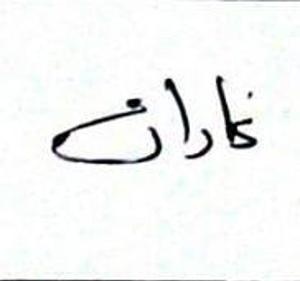 فاران